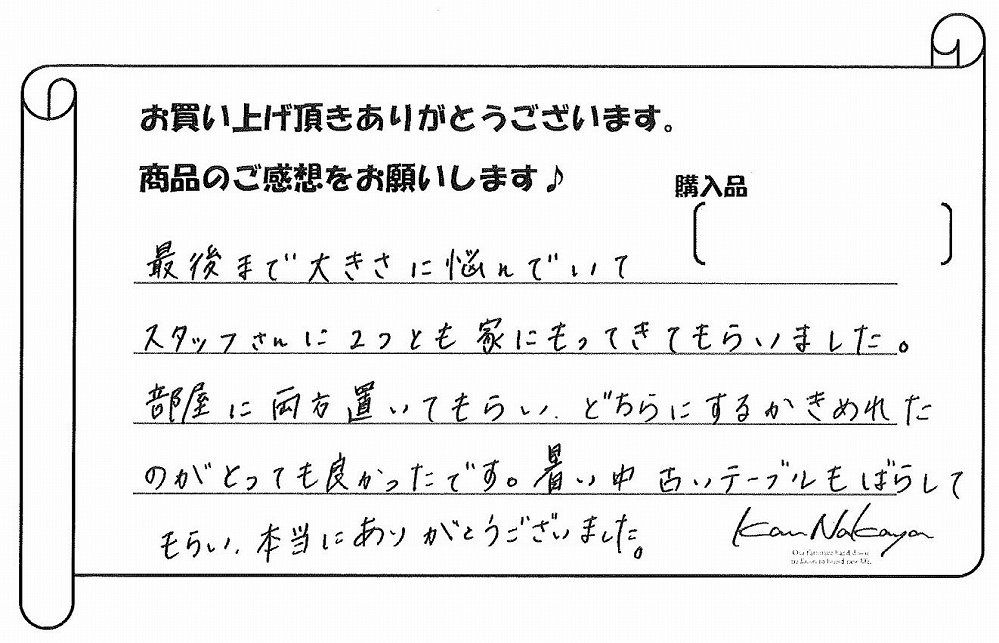 お買い上げ頂きありがとうございます。
商品のご感想をお願いします♪
購入品
最後まで大きさに悩んでいて
スタッフさんに2つとも家にもってきてもらいました。
部屋に両方置いてもらい、どちらにするかきめれた
のがとっても良かったです。暑い中古いテーブルもばらして
もらい、本当にありがとうございました。
Kan Nakaya